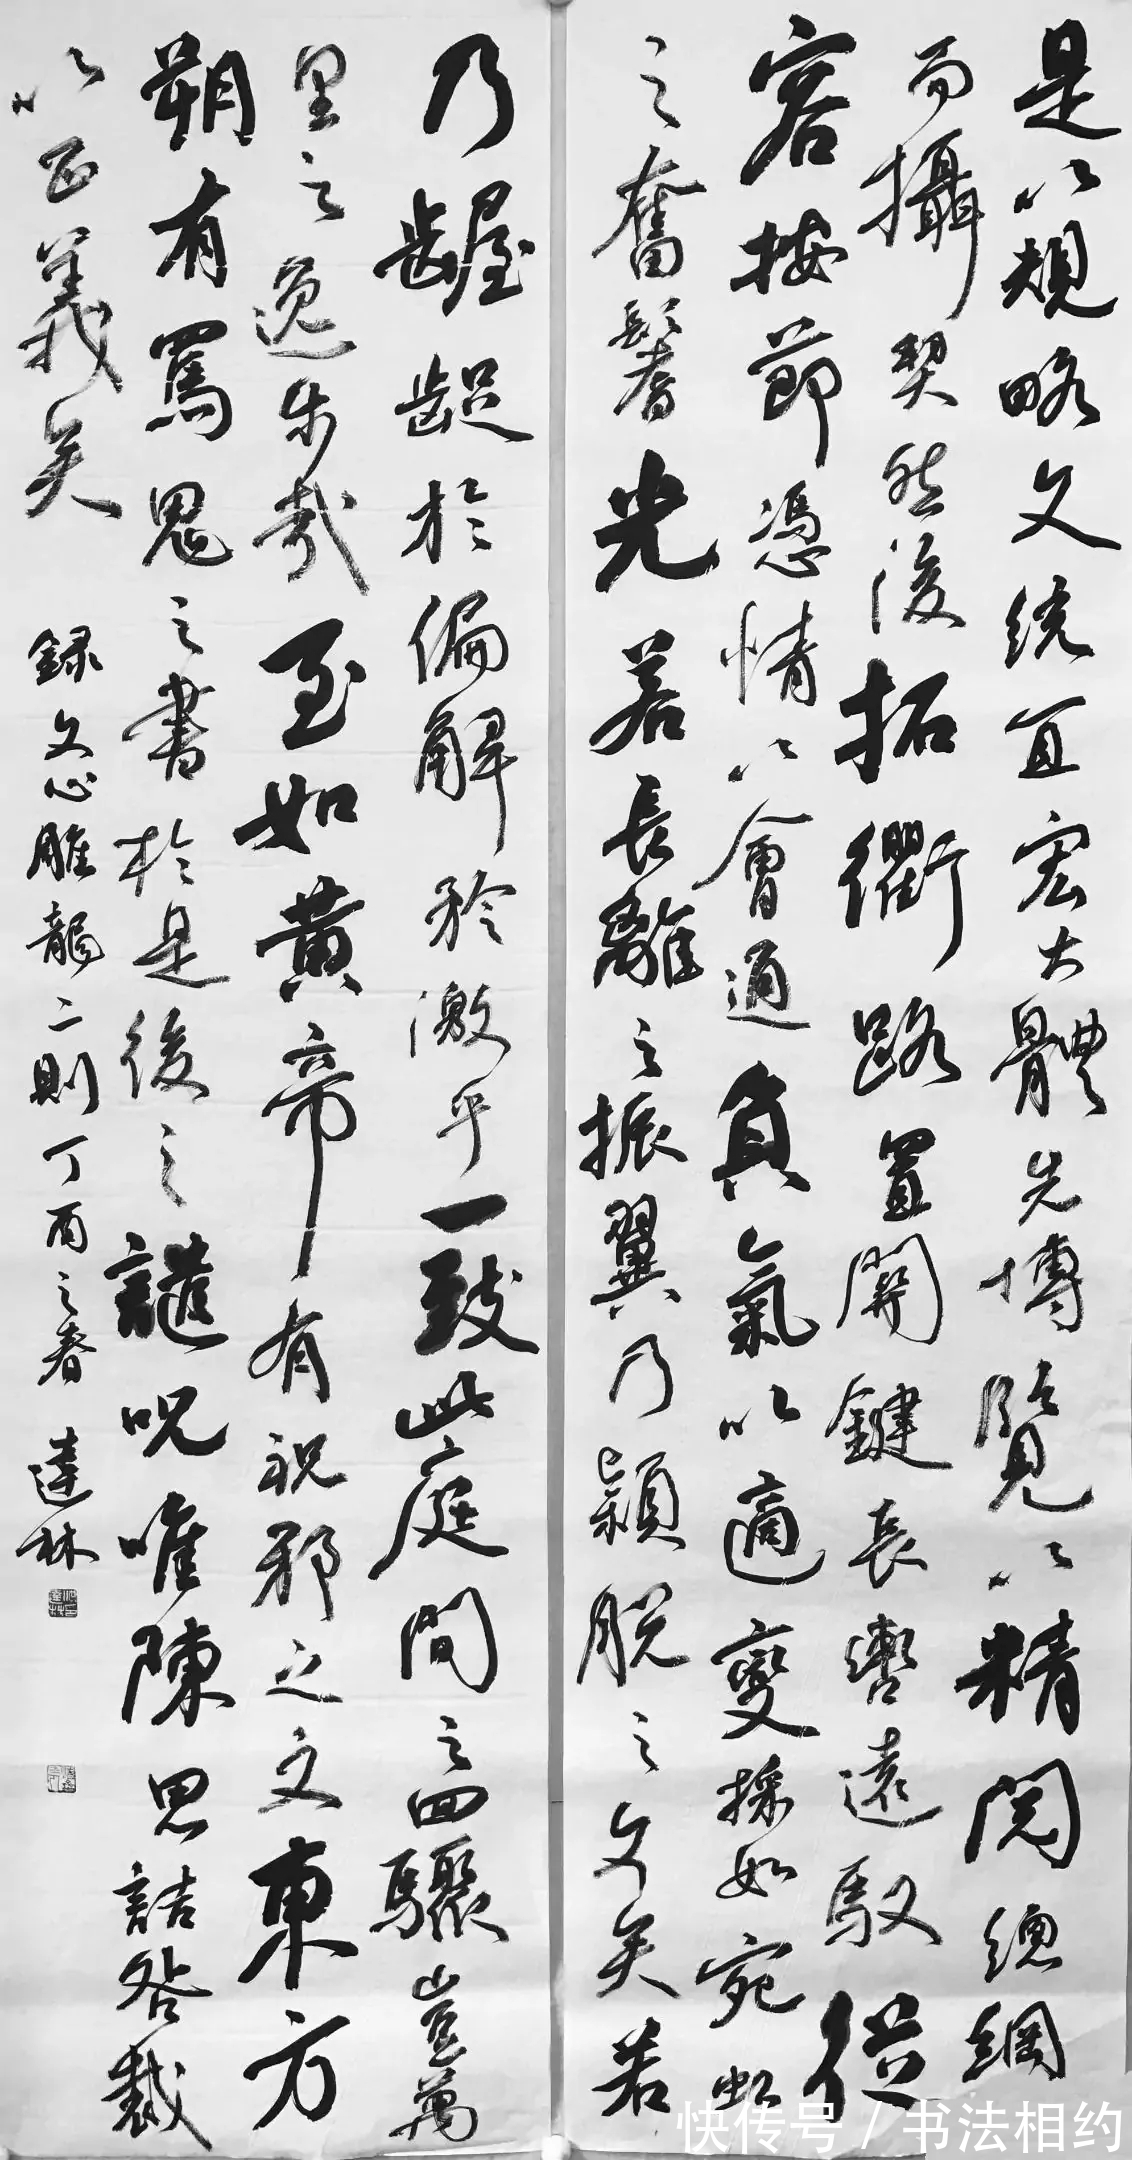 是以規略文統宜宏大體先博覽以精閱總綱
而攝契然後拓衢路置關鍵長轡遠馭從
容按節憑情以會通負氣以適變採如宛虹
之奮鬐光若長離之振翼乃穎脫之文矣若
乃齷齪於偏解矜激乎一致此庭間之回驟豈萬
里之逸步哉至如黃帝有祝邪之文東方
朔有罵鬼之書於是後之譴呪唯陳思詰咎裁
以正義矣 錄文心雕龍二則丁酉之春 達林
快传号 / 书法相约